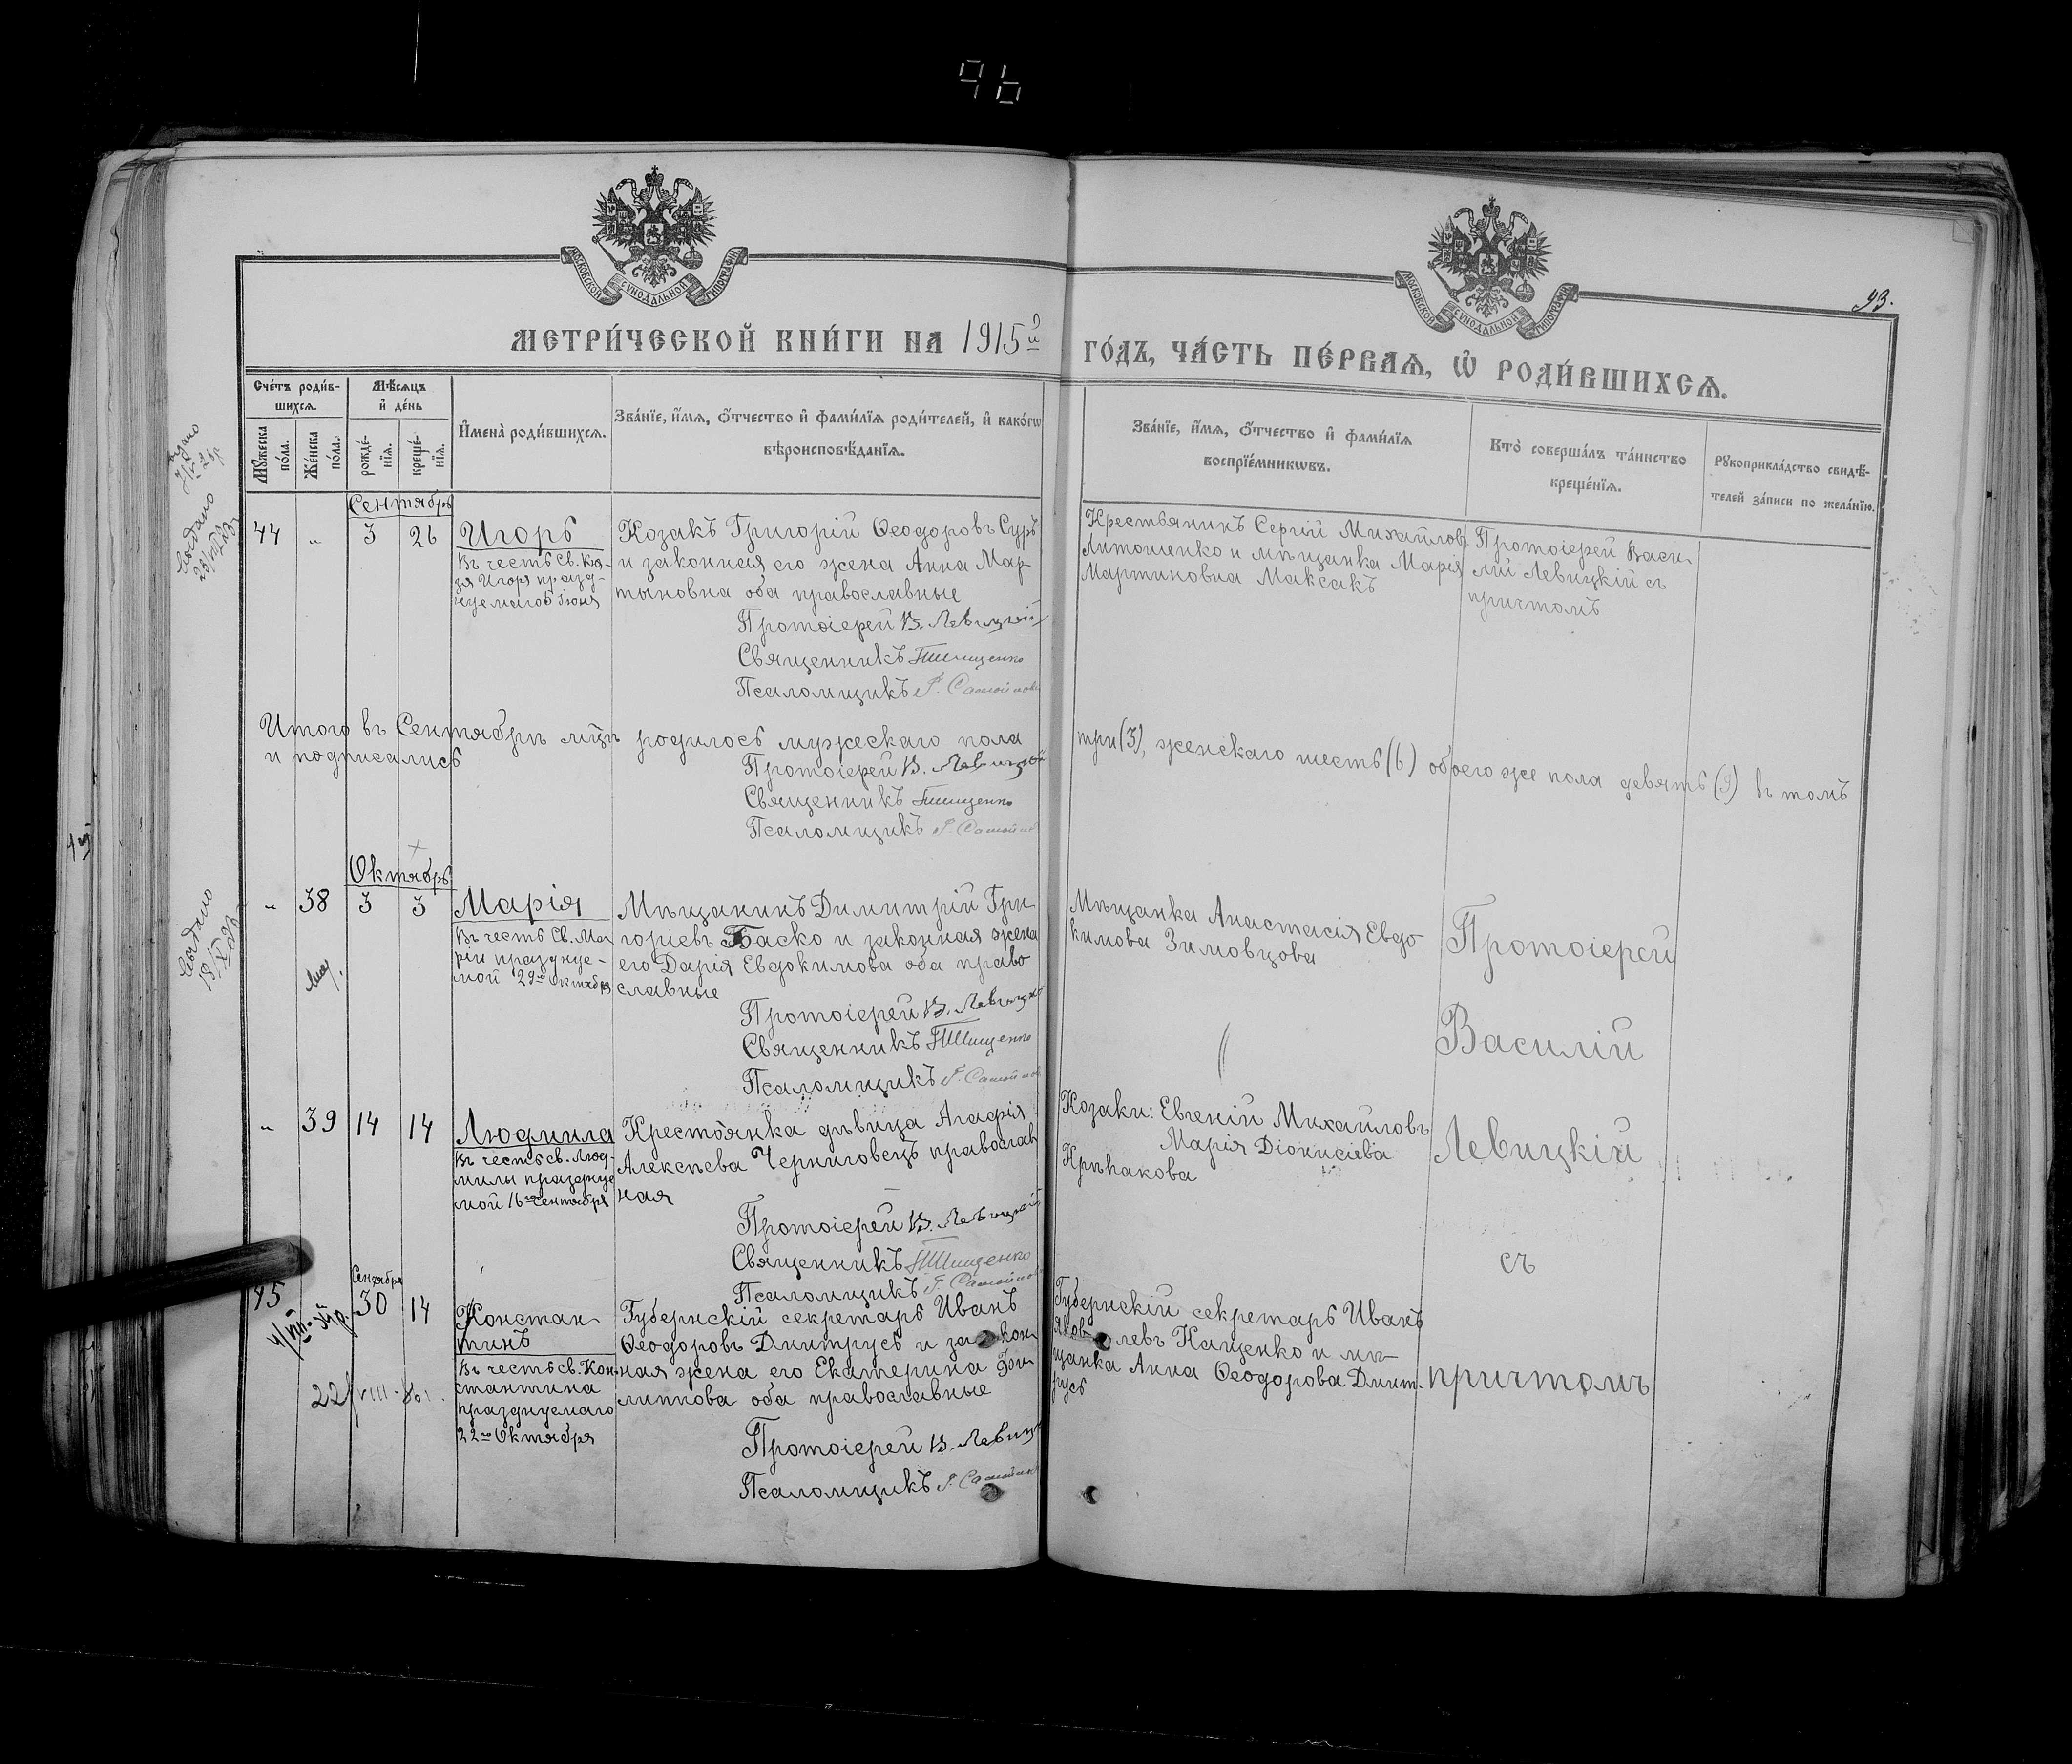 96
МОСКОВСКОЙ СѴНОДАЛЬНОЙ ТИПОГРАФІИ
МОСКОВСКОЙ СѴНОДАЛЬНОЙ ТИПОГРАФІИ
93.
МЕТРИ́ЧЕСКОЙ КНИ́ГИ НА 1915й
ГО́ДЪ, ЧА́СТЬ ПЕ́РВАѦ, Ѽ РОДИ́ВШИХСѦ.
Сче́тъ роди́в-
шихсѧ.
Мѣ́сѧцъ
и҆ де́нь
Мꙋ́жеска
по́ла.
Же́нска
по́ла.
рожде́-
нїѧ.
креще́-
нїѧ.
И҆мена̀ роди́вшихсѧ.
Зва́нїе, и҆́мѧ, ѻ҆́тчество и҆ фами́лїѧ роди́телей, и҆ како́гѡ
вѣроисповѣ́данїѧ.
Зва́нїе, и҆́мѧ, ѻ҆́тчество и҆ фами́лїѧ
воспрїе́мникѡвъ.
Кто̀ соверша́лъ та́инство
креще́нїѧ.
Рꙋкоприкла́дство свидѣ́-
телей за́писи по жела́нїю.
Сентябрь
44 " 3 26 Игорь
Въ честь Св. Кня-
зя Игоря празд-
нуемаго 5 Іюня
Козакъ Григорій Ѳеодоровъ Суръ
и законная его жена Анна Мар-
тыновна оба православные
Протоіерей В. Левицкій
Священникъ Тищенко
Псаломщикъ
Крестьянинъ Сергій Михайлов.
Литошенко и мѣщанка Марія
Мартиновна Максакъ
Протоіерей Васи-
лій Левицкій съ
причтомъ
Итого въ Сентябрѣ мѣцѣ родилось мужескаго пола три (3), женскаго шесть (6) обоего же пола девять (9) въ томъ
и подписались
Протоіерей В. Левицкій
Священникъ Тищенко
Псаломщикъ
Октябрь
" 38 3 3 Марія
Въ честь Св. Ма-
ріи празднуе-
мой 29го Октября
Мѣщанинъ Димитрій Гри-
горіевъ Баско и законная жена
его Дарія Евдокимова оба право
славные
Протоіерей В. Левицкій
Священникъ Тищенко
Псаломщикъ
Мѣщанка Анастасія Евдо-
кимова Зимовцова
Протоіерей
Василій
Левицкій
съ
причтомъ
" 39 14 14 Людмила
Въ честь св. Люд-
милы празднуе
мой 16го Сентября
Крестьянка дѣвица Агафія
Алексѣева Черниговецъ православ
ная
Протоіерей В. Левицкій
Священникъ Тищенко
Псаломщикъ
Козаки: Евгеній Михайловъ
Марія Діонисіева
45 Сентября
30 14 Констан-
тинъ
Въ честь св. Кон-
стантина
празднуемаго
22го Октября
Губернскій секретарь Иванъ
Ѳеодоровъ Дмитрусь и закон-
ная жена его Екатерина Фи-
липпова оба православные
Протоіерей В. Левицк
Псаломщикъ
Губернскій секретарь Иванъ
Яковлевъ Кащенко и мѣ-
щанка Анна Ѳеодорова Дмит-
русь